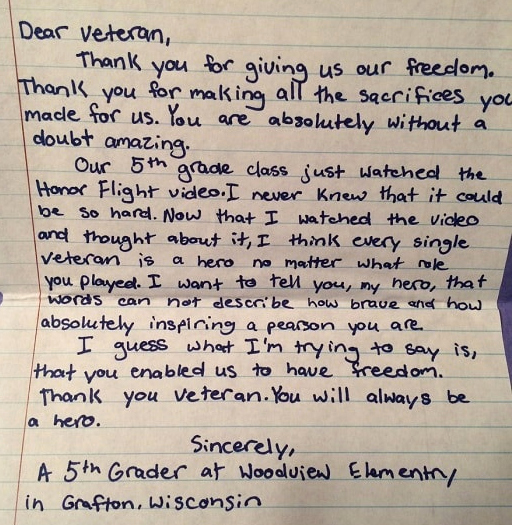 Dear Veteran,
Thank you for giving us our freedom.
Thank you for making all the sacrifices you
made for us. You are absolutely without a
doubt amazing.
Our 5th grade class just watched the
Honor Flight video. I never knew that it could
be so hard. Now that I watched the video
and thought about it, I think every single
veteran is a hero no matter what role
you played. I want to tell you, my hero, that
words can not describe how brave and how
absolutely inspiring a pearson you are
I guess what I'm trying to say is,
that you enabled us to have freedom.
Thank you veteran. You will always be
a hero.
Sincerely,
A 5th Grader at Woodview Elementry
in Grafton, Wisconsin